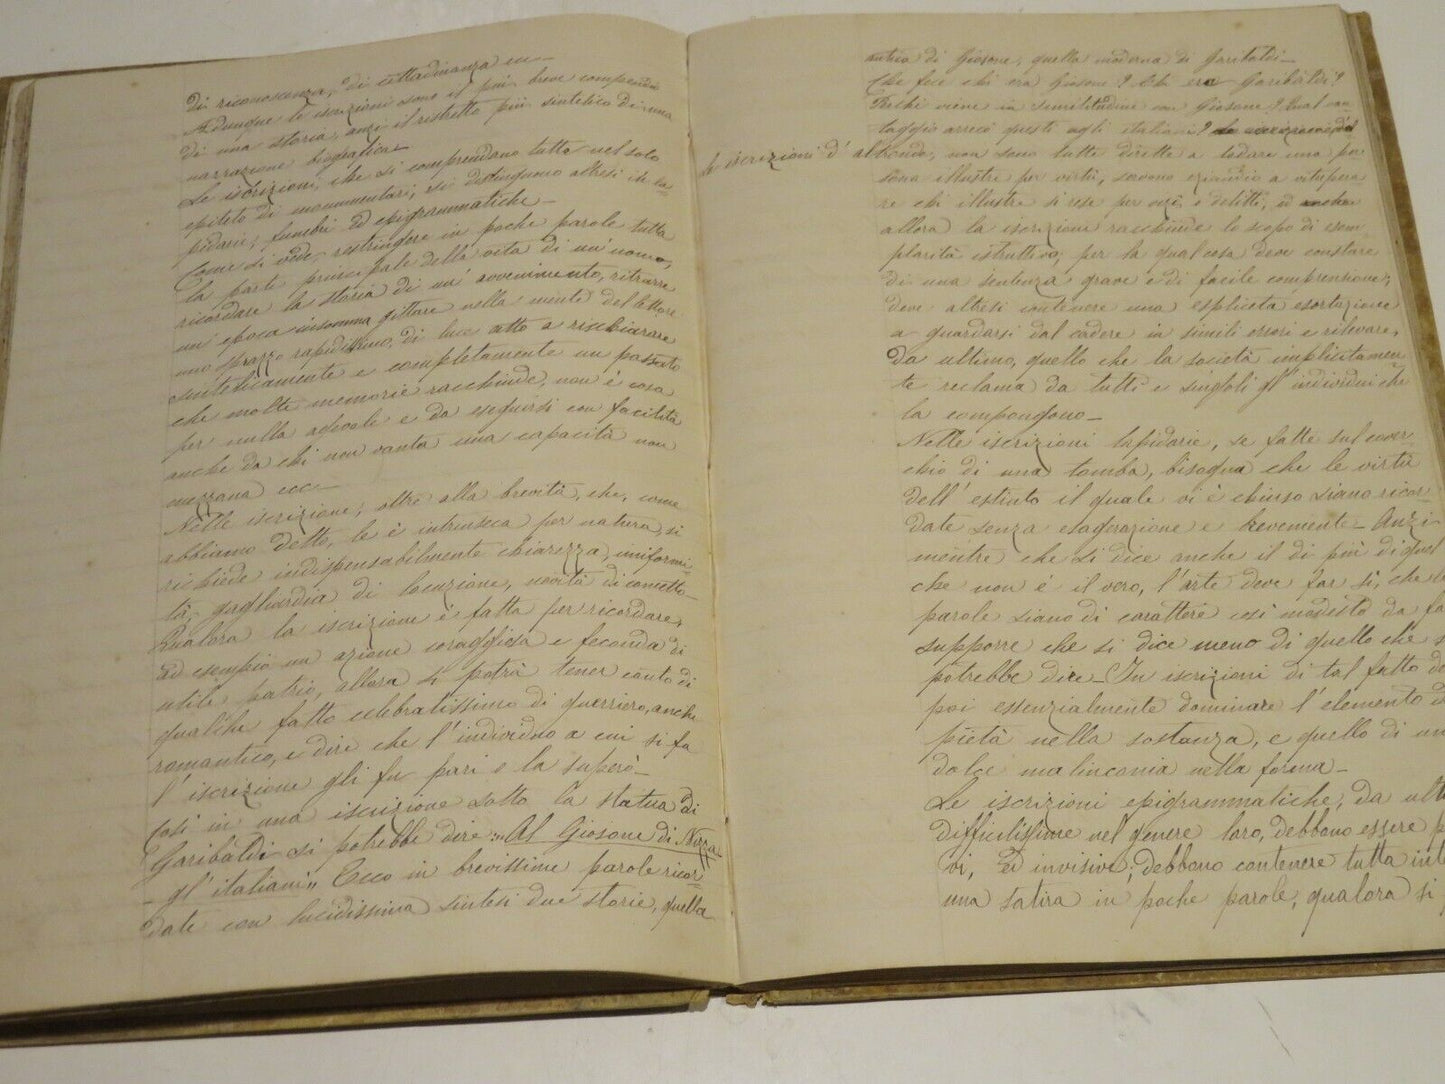 di riconoscenza, di cittadinanza ecc—
Adunque le iscrizioni sono il più breve compendio
di una storia, anzi il ristretto più sintetico di una
narrazione biografica—
Le iscrizioni, che si comprendono tutte nel solo
epiteto di monumentari, si distinguono altresì in la-
pidarie, funebri ed epigrammatiche—
Come si vede, restringere in poche parole tutta
la parte principale della vita di un'uomo,
ricordare la storia di un' avvenimento, ritrarre
un epoca insomma gittare nella mente del lettore
uno sprazzo rapidissimo, di luce atto a rischiarare
sinteticamente e completamente un passato
che molte memorie racchiude, non è cosa
per nulla agevole e da eseguirsi con facilità
anche da chi non vanta una capacità non
mezzana ecc—
Nelle iscrizione, oltre alla brevità, che, come
abbiamo detto, le è intrinseca per natura, si
richiede indispensabilmente chiarezza, uniformi-
tà, gagliardia di locuzione, novità di concetto—
Qualora la iscrizione è fatta per ricordare,
ad esempio un azione coraggiosa e feconda di
utili patrio, allora si potrà tener conto di
qualche fatto celebratissimo di guerriero, anche
romantico, e dire che l'individuo a cui si fa
l'iscrizione gli fu pari o la superò—
Così in una iscrizione sotto la statua di
Garibaldi si potrebbe dire: „Al Giasone di Nizza
gl' italiani„ Ecco in brevissime parole ricor-
date con lucidissima sintesi due storie, quella
antica di Giasone, quella moderna di Garibaldi—
Che fece chi era Giasone? Chi era Garibaldi?
Perchè viene in similitudine con Giasone? Qual van-
taggio arrecò questi agli italiani?
Le iscrizioni d' altronde, non sono tutte dirette a lodare una per
sona illustre per virtù, servono eziandio a vitupera
re chi illustre si rese per vizi, e delitti, ed anche
allora la iscrizione racchiude lo scopo di esem-
plarità istruttivo; per la qual cosa deve constare
di una sentenza grave e di facile comprensione;
deve altresì contenere una esplicita esortazione
a guardarsi dal cadere in simili errori e rilevare,
da ultimo, quello che la società implicitamen
te reclama da tutti e singoli gl' individui che
la compongono—
Nelle iscrizioni lapidarie, se fatte sul coper-
chio di una tomba, bisogna che le virtù
dell' estinto il quale vi è chiuso siano ricor-
date senza esagerazione e brevemente— Anzi
mentre che si dice anche il di più di quel
che non è il vero, l'arte deve far sì, che le
parole siano di carattere così modesto da fa
supporre che si dice meno di quello che s
potrebbe dire— In iscrizioni di tal fatto de
poi essenzialmente dominare l'elemento d
pietà nella sostanza, e quello di un
dolce malinconia nella forma—
Le iscrizioni epigrammatiche, da ult
difficilissime nel genere loro, debbono essere
vi, ed invisive, debbono contenere tutta int
una satira in poche parole, qualora si